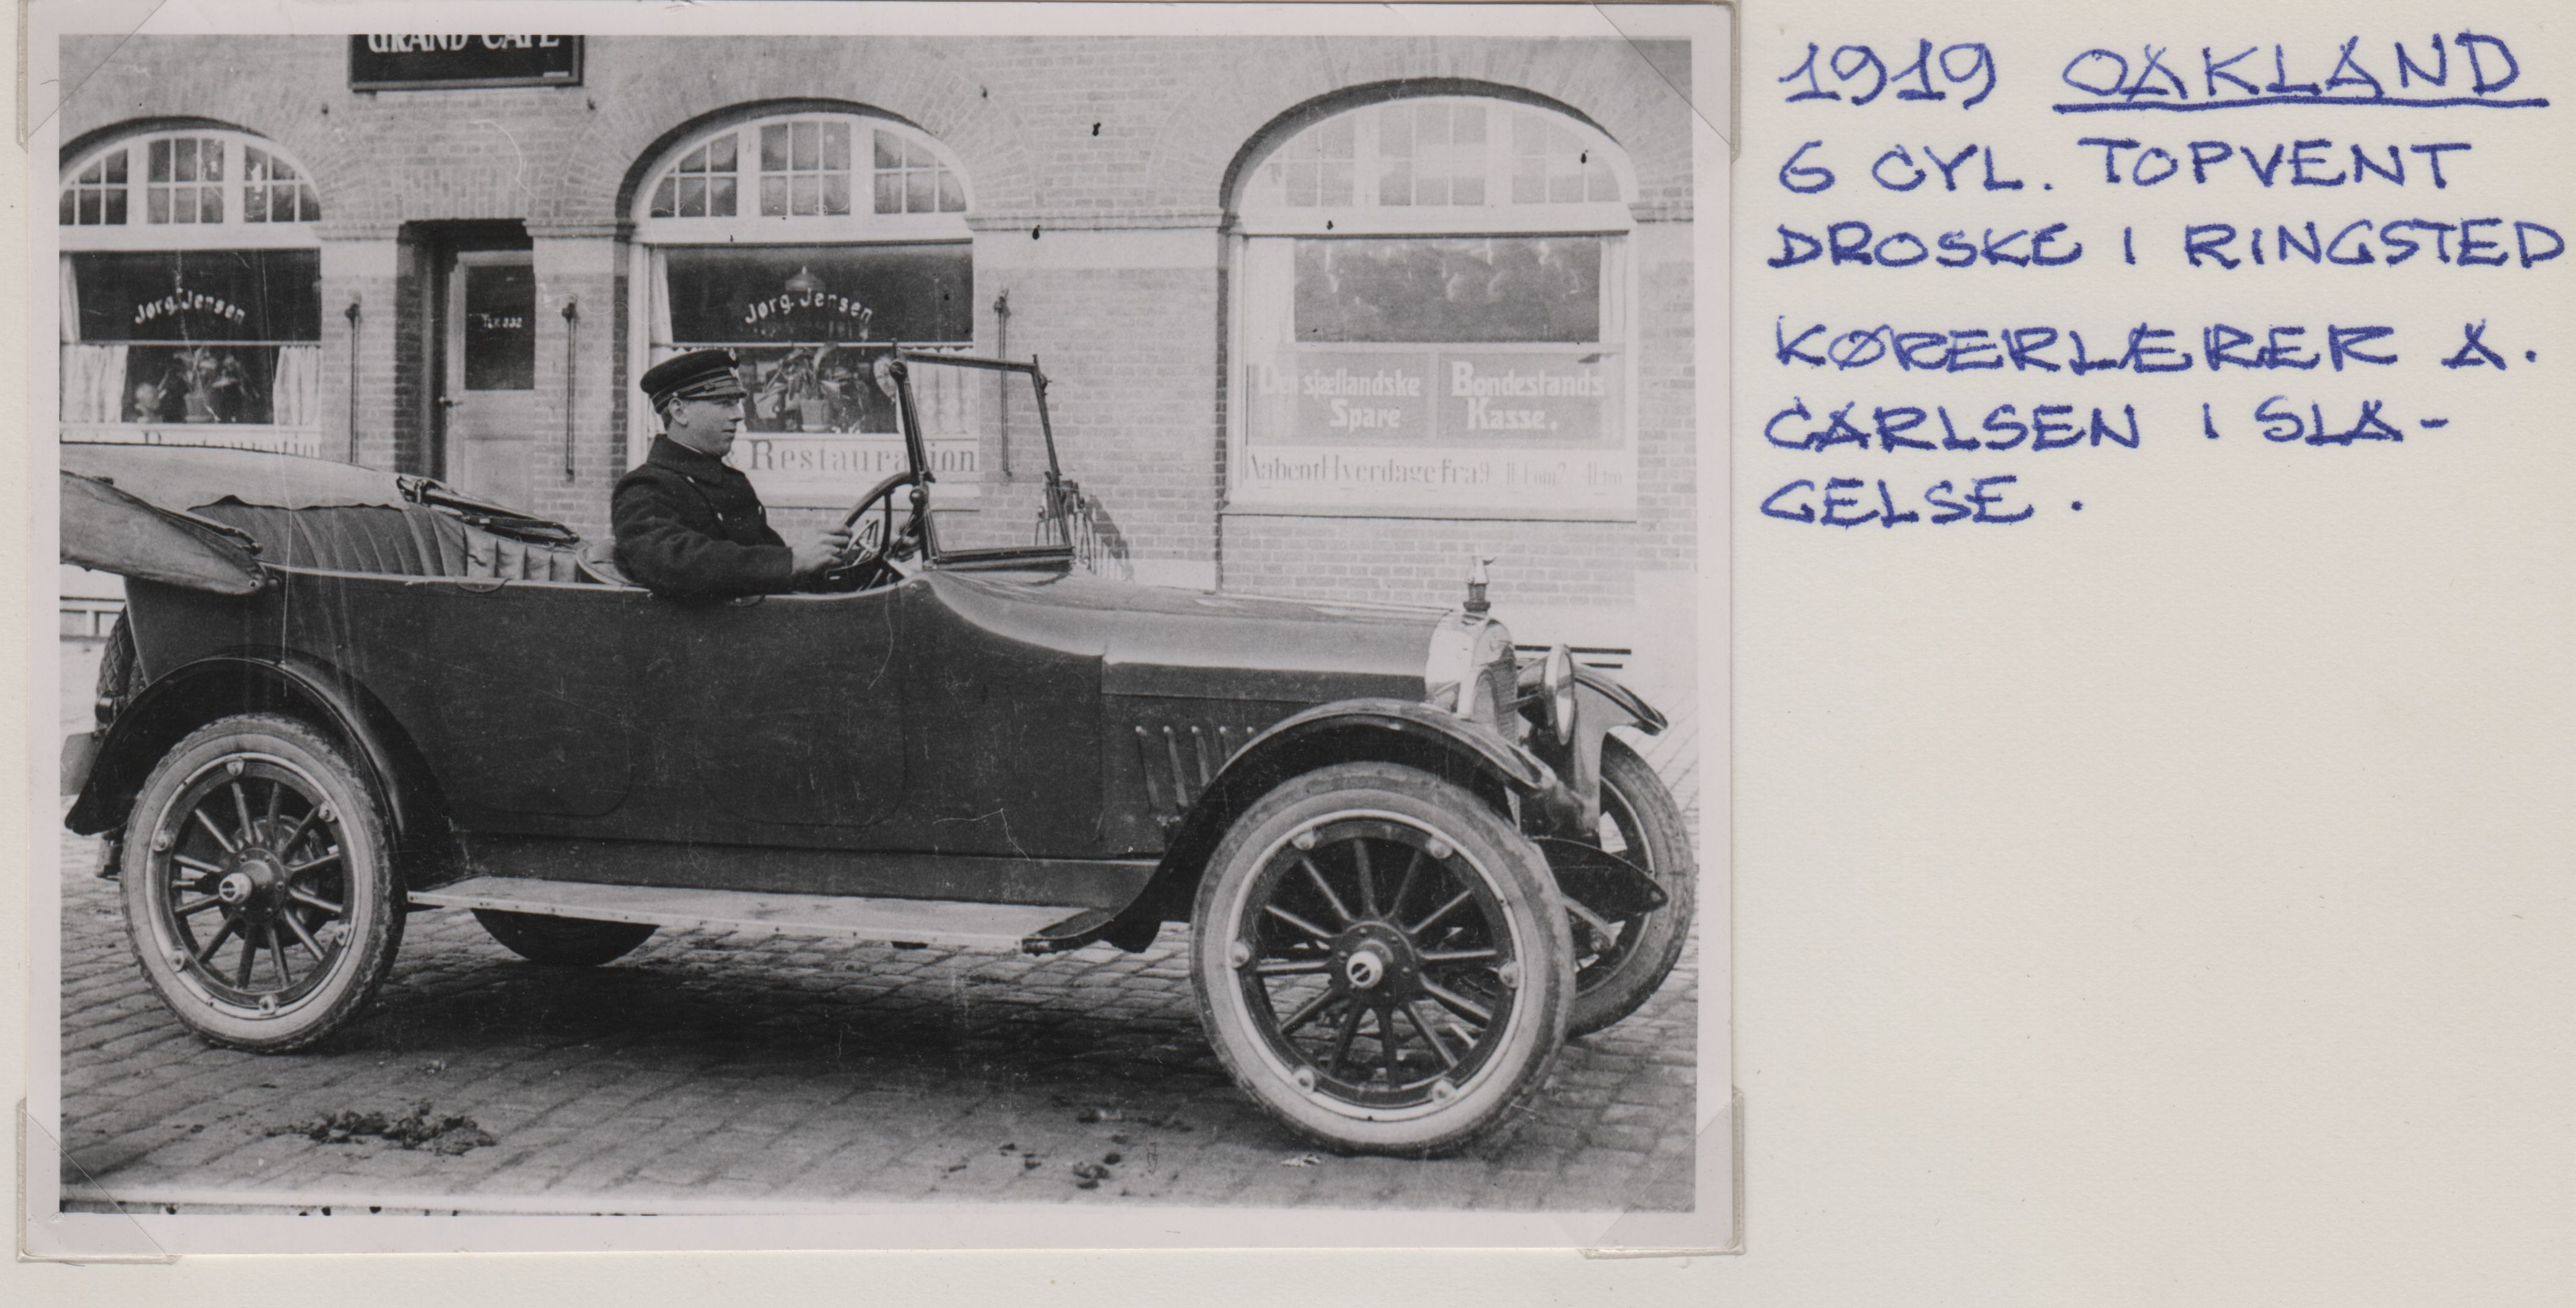 GRAND CAFE
Jørg. Jensen
Jørg. Jensen
Restauration
Restauration
Den sjællandske Bondestands
Spare Kasse.
Aabent Hverdage fra 9
1919 OAKLAND
6 CYL. TOPVENT
DROSKE I RINGSTED
KØRERLÆRER A.
CARLSEN I SLA-
GELSE.